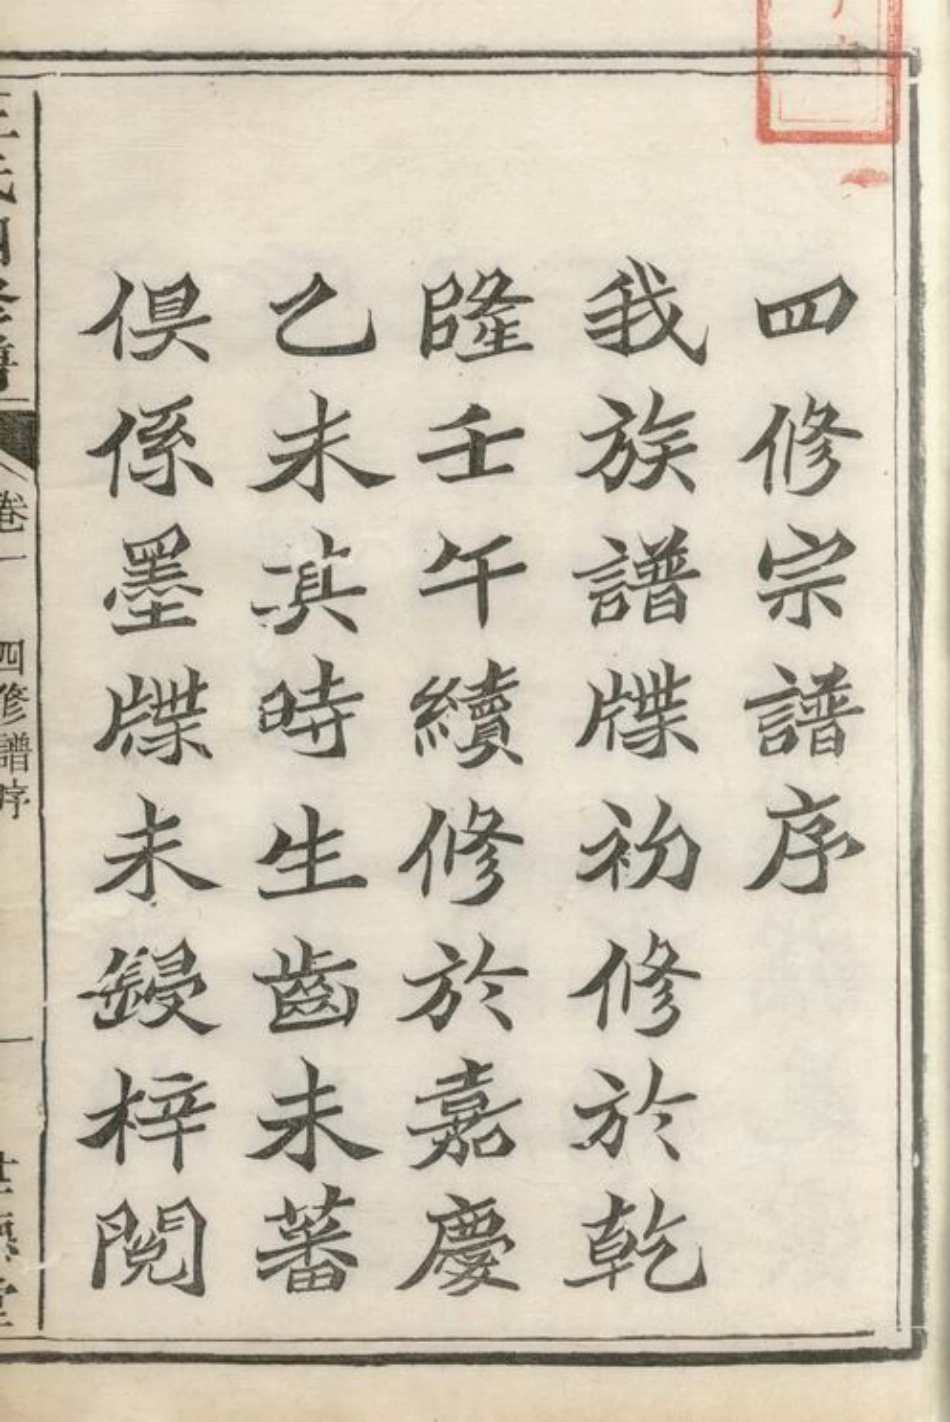 四修宗譜序
我族譜牒初修於乾
隆壬午續修於嘉慶
乙未其時生齒未蕃
俱係墨牒未鋟梓閱
王氏四修譜
卷一
四修譜序
一
世德堂